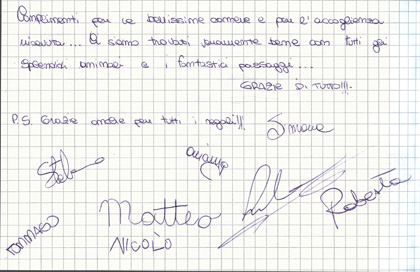 Complimenti per le bellissime camere e per l'accoglienza
ricevuta... Ci siamo trovati veramente bene con tutti gli
splendidi animali e i fantastici paesaggi...
GRAZIE DI TUTTO!!!
P.S. Grazie anche per tutti i regali!!! Simone
Stefano
TOMMASO Matteo Roberta
NICOLÒ